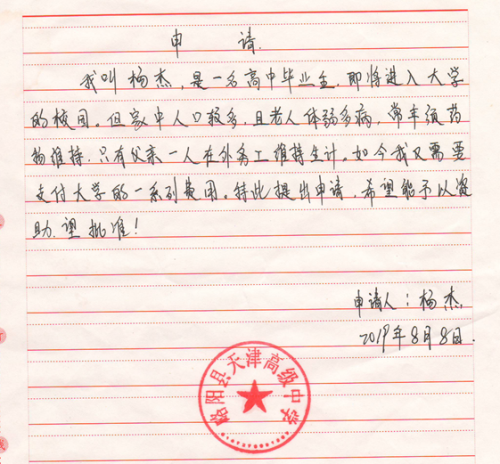 申 请
我叫杨杰,是一名高中毕业生,即将进入大学
的校园。但家中人口较多,且老人体弱多病,常年须药
物维持,只有父亲一人在外务工维持生计。如今我又需要
支付大学的一系列费用。特此提出申请,希望能予以资
助,望批准!
申请人:杨杰.
2019年8月8日.
略阳县天津高级中学